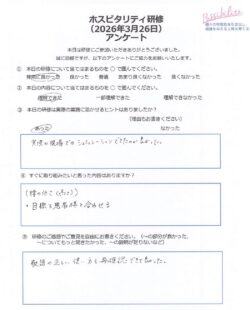 ホスピタリティ研修
(2026年3月26日)
アンケート
本日は研修にご参加いただきありがとうございました。
誠にお手数ですが、以下のアンケートにご協力をお願いいたします。
① 本日の研修について当てはまるものを ○ で囲んでください。
非常に良かった 良かった 普通 あまり良くなかった 良くなかった
② 本日の内容について当てはまるものを ○ で囲んでください。
理解できた 一部理解できた 理解できなかった
③ 本日の研修は実際の業務に活かせるヒントはありましたか?
(理由もお書きください)
あった なかった
実際の現場で シュミレーション できたのが良かった。
④ すぐに取り組みたいと思った内容はありますか?
・目線を患者様と合わせる
⑤ 研修のご感想やご意見を自由にお書きください。(~の部分が良かった、
~についてもっと聞きたかった、~の説明が足りないなど)
敬語の正しい使い方を再確認できて良かった。